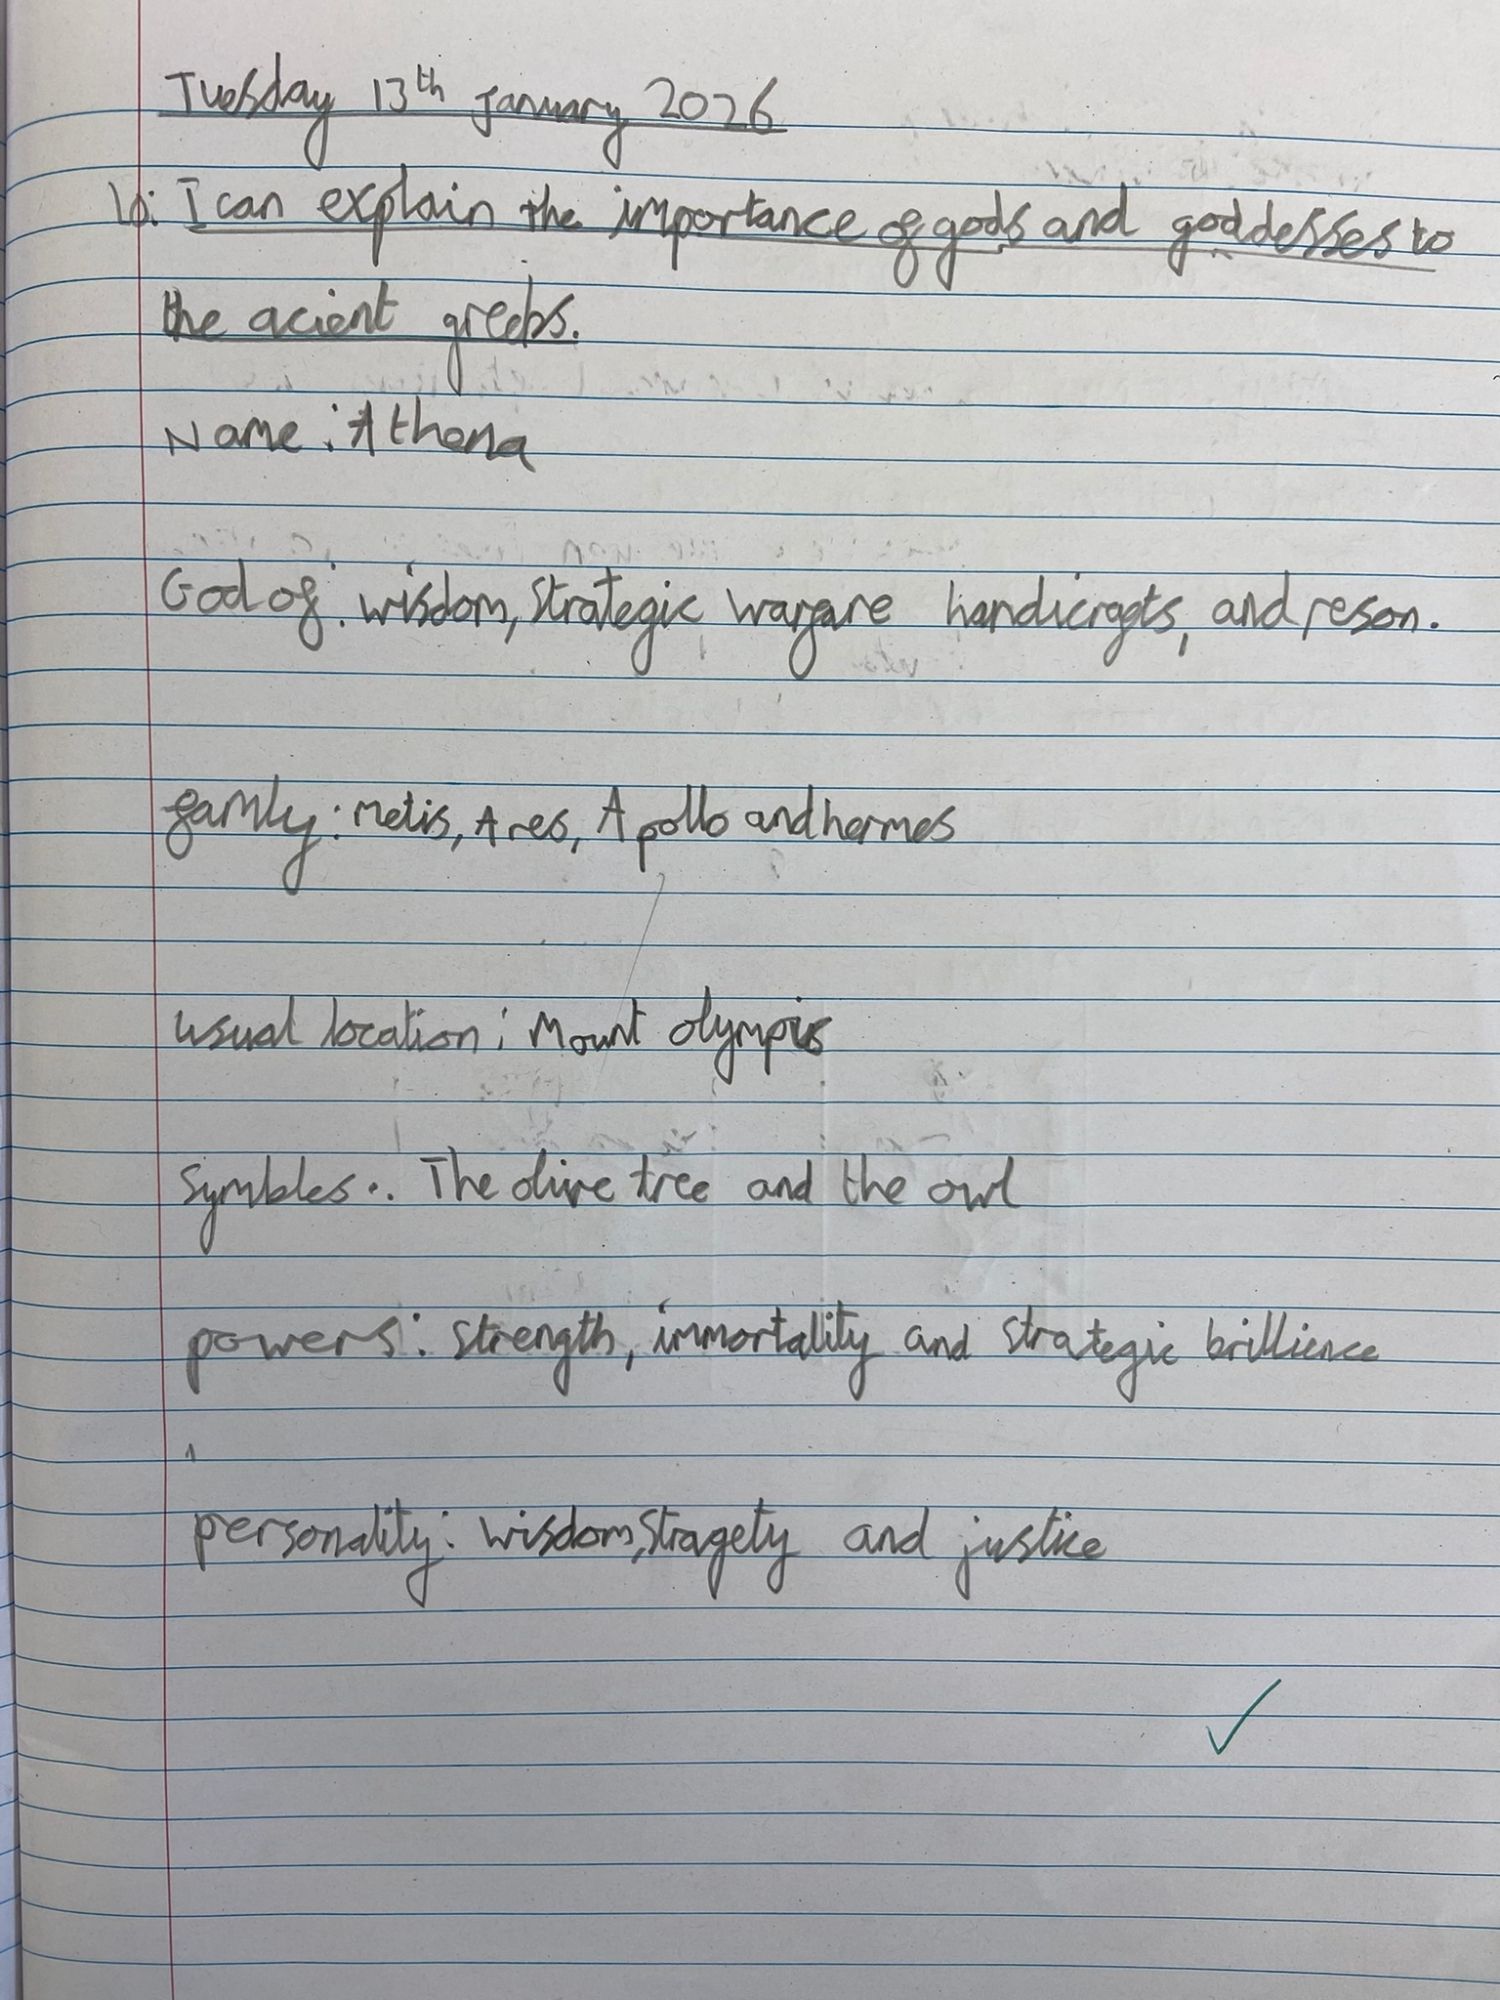 Tuesday 13th January 2026
lo: I can explain the importance of gods and goddesses to
the acient greeks.
Name: Athena
God of: wisdom, strategic warfare handicrafts, and reson.
family: metis, Ares, Apollo and hermes
usual location: Mount olympis
Symbles: The olive tree and the owl
powers: strength, immortality and strategic brillience
personality: wisdom, stragety and justice